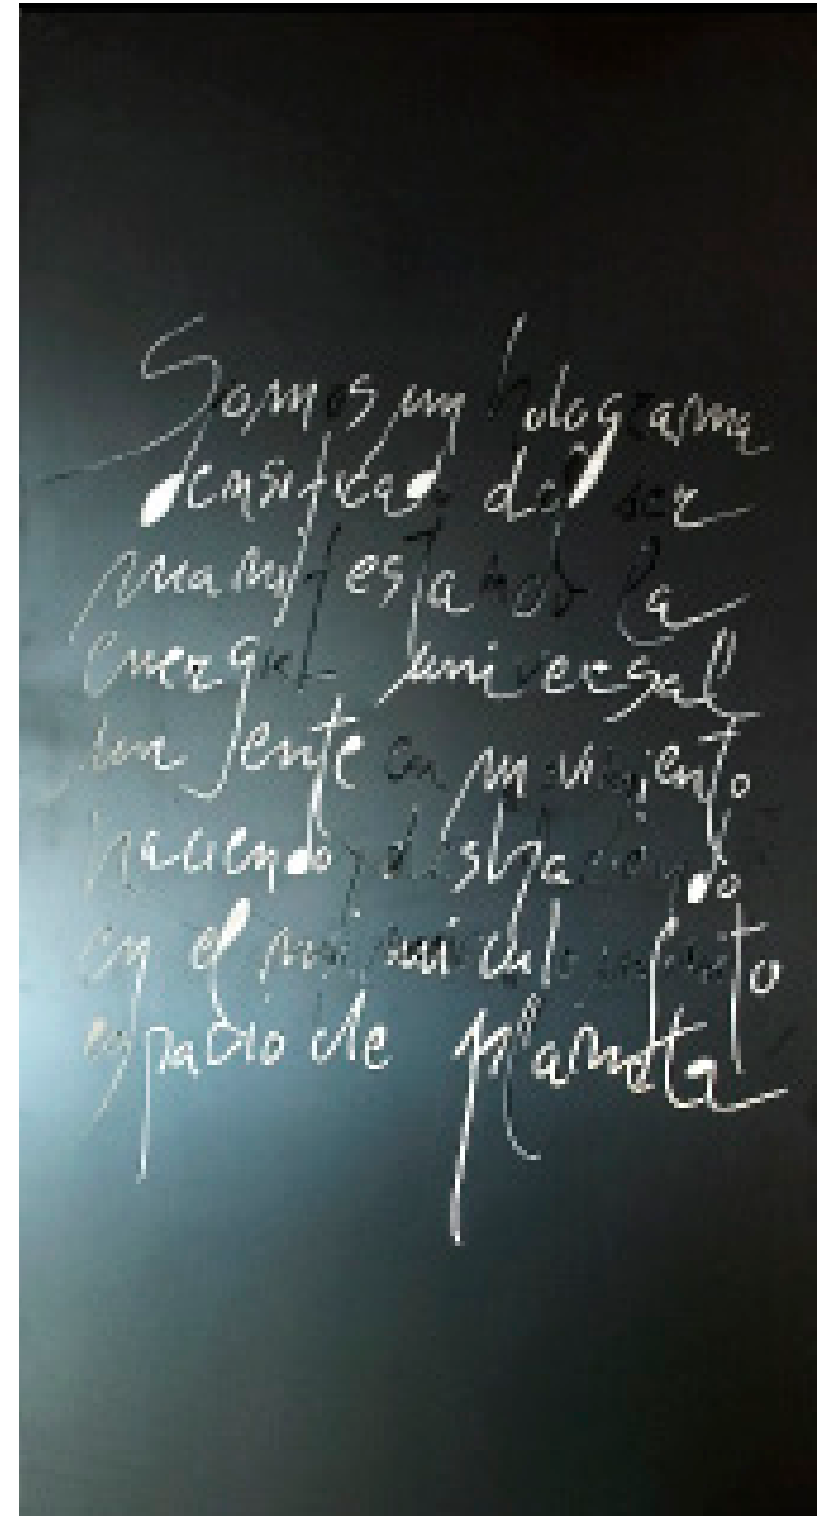 Somos un holograma
densificado del ser
manifestamos la
energia universal
un ente en movimiento
haciendo y deshaciendo
en el minúsculo infinito
espacio de planeta